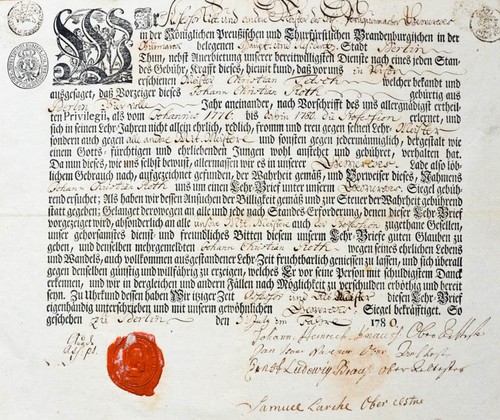 Wir Assessor und andere Meister des
in der Königlichen Preußischen und Churfürstlichen Brandenburgischen in der
Churmarck belegenen Haupt- und Residentz- Stadt Berlin
Thun, nebst Anerbietung unserer bereitwilligsten Dienste nach eines jeden Stan-
des Gebühr, Krafft dieses, hiermit kund, daß vor uns in
erschienen Meister Christian welcher bekandt und
ausgesaget, daß Vorzeiger dieses Johann Christian Roth gebürtig aus
Berlin Jahr aneinander, nach Vorschrifft des uns allergnädigst ertheil-
ten Privilegii, als vom Johannis 1776. bis 1780. die Profession erlernet, und
sich in seinen Lehr-Jahren nicht allein ehrlich, redlich, fromm und treu gegen seinen Lehr- Meister
sondern auch gegen alle andere Mit-Meistere und sonsten gegen jedermänniglich, dergestalt wie
einem Gotts- fürchtigen und ehrliebenden Jungen wohl anstehet und gebühret, verhalten hat.
Da nun dieses, wie uns selbst bewust, allermassen wir es in unserer Lade also üb-
lichem Gebrauch nach, aufgezeichnet gefunden, der Wahrheit gemäß, und Vorweiser dieses, Nahmens
Johann Christian Roth uns um einen Lehr-Brief unter unserm Siegel gebüh-
rend ersuchet; Als haben wir dessen Ansuchen der Billigkeit gemäß und zur Steuer der Wahrheit gebührend
statt gegeben; Gelanget derowegen an alle und jede nach Standes Erforderung, denen dieser Lehr-Brief
vorgezeiget wird, absonderlich an alle unsere Mit-Meistere auch der Profession zugethane Gesellen,
unser gehorsamstes dienst und freundliches Bitten diesem unserm Lehr-Briefe guten Glauben zu
geben, und denselben mehrgemeldten Johann Christian Roth wegen seines ehrlichen Lebens
und Wandels, auch vollkommen ausgestandener Lehr-Zeit fruchtbarlich geniessen zu lassen, und sich überall
gegen denselben günstig und willfährig zu erzeigen, welches Er vor seine Person mit schuldigstem Danck
erkennen, und wir in dergleichen und andern Fällen nach Möglichkeit zu verschulden erböthig und bereit
seyn. Zu Urkund dessen haben Wir itziger Zeit Assessor und Alt-Meister diesen Lehr-Brief
eigenhändig unterschrieben und mit unserm gewöhnlichen Siegel bekräfftiget. So
geschehen zu Berlin, den 1780.
Johann Heinrich Ober Eltester
Ernst Ludewig Ober Eltester
Samuel Larche Ober elste